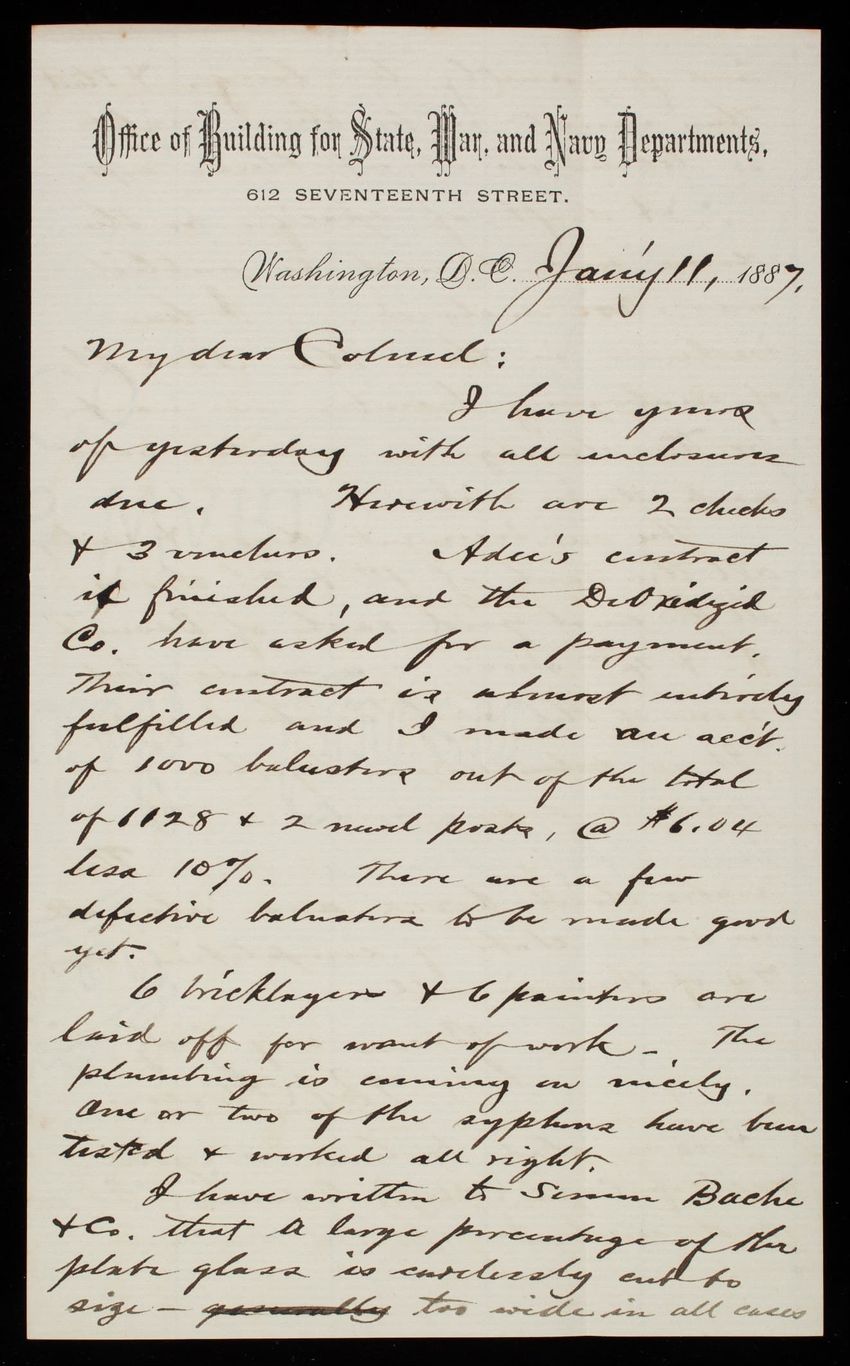 Office of Building for State, War, and Navy Departments,
612 SEVENTEENTH STREET.
Washington, D.C. Jan'y 11, 1887.
My dear Colonel:
I have yours
of yesterday with all enclosures
due. Herewith are 2 checks
& 3 vouchers. Adee's contract
is finished, and the DeOxidized
Co. have asked for a payment.
Their contract is almost entirely
fulfilled and I made an acc't.
of 1000 balusters out of the total
of 1128 & 2 newel posts, @ $6.04
less 10%. There are a few
defective balusters to be made good
yet.
6 bricklayers & 6 painters are
laid off for want of work - The
plumbing is coming on nicely.
One or two of the syphons have been
tested & worked all right.
I have written to Semon Bache
& Co. that a large percentage of the
plate glass is carelessly cut to
size - generally too wide in all cases